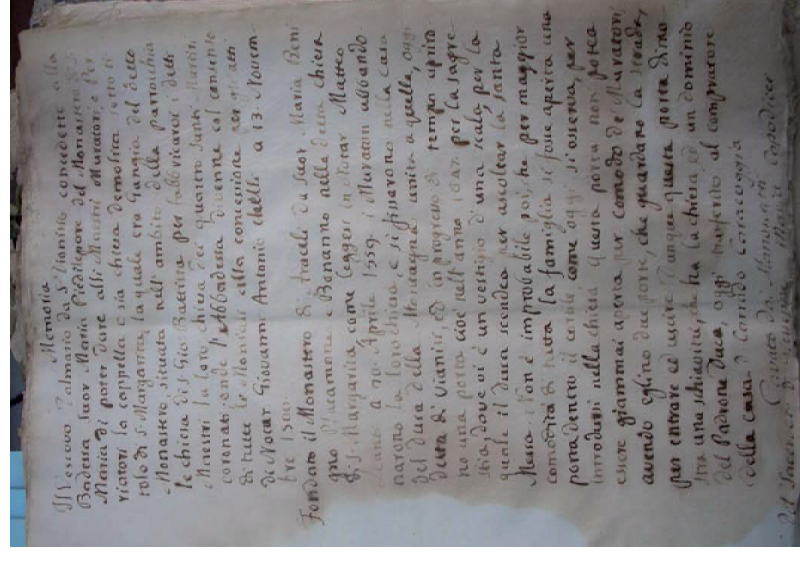 Memoria
Il Vescovo Palmario da S. Vianino concedette alla
Badessa Suor Maria del Monastero di S.
Maria di poter dare alli Maestri Muratori e Per-
riatori la cappella o sia chiesa demolita sotto ti-
tolo di S. Margarita, la quale era Gangia del detto
Monastero situata nell'ambito della parrocchia
le chiesa di S. Gio Battista per fabbricarvi i detti
Maestri la loro chiesa dei quattro Santi Martiri
coronati onde l'Abbadessa divenne col consenso
di tutte le Moniali alla concessione agli atti
di Notar Giovanni Antonio Chelli a 13 Novem-
bre
Fondato il Monastero di da Suor Maria Beni
gno Placamone e Bonanno nella detta chiesa
di S. Margarita, come leggesi in Notar Matteo
a Aprile 1559. i Muratori abbando
narono la loro chiesa, e si fissarono nella casa
del Duca della Montagna unita a quella, oggi
detta di Vianisi, ed in progresso di tempo aprirò
no una porta cioè nell'anno per la sagre-
stia, dove vi è un vestigio d'una scala, per la
quale il Duca scendea per ascoltar la santa
Messa. Non è improbabile poiche per maggior
comodità di tutta la famiglia si fosse aperta una
porta dentro il cortile come oggi si osserva, per
introdursi nella chiesa questa porta non potea
essere giammai aperta per comodo de' Muratori
avendo eglino due porte, che guardano la strada,
per entrare ed uscire dunque questa porta dimo
stra una schiavitù, che ha la chiesa ed un dominio
del Padrone Duca, oggi trasferito al compratore
della casa D. Corrado Caracoggia